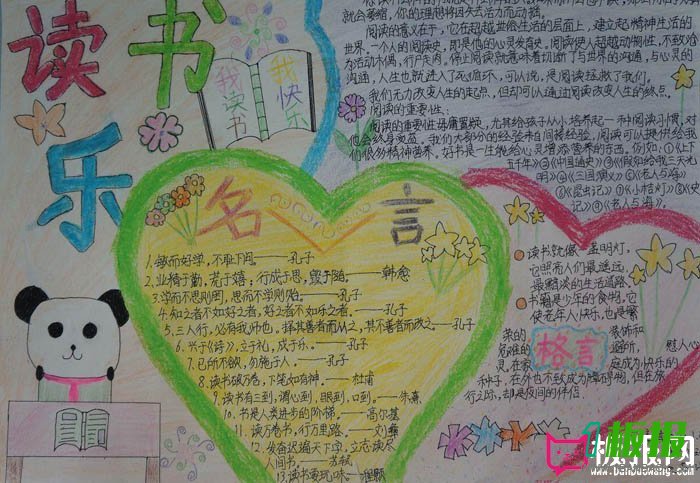 读书乐
我读书
我快乐
就会萎缩，你的理想将因失去活力而动摇。
阅读的意义在于，它在超越世俗生活的层面上，建立起精神生活的
世界。一个人的阅读史，即是他的心灵发育史。阅读使人超越动物性，不致沦
为活动木偶，行尸走肉。停止阅读就意味着切断了与世界的沟通，与心灵的
沟通，人生也就进入了死循环。可以说，是阅读拯救了我们。
我们无力改变人生的起点，但却可以通过阅读改变人生的终点。
阅读的重要性：
阅读的重要性毋庸置疑，尤其给孩子从小培养起一种阅读习惯，对
他会终身受益。我们大部分的经验来自间接经验，阅读可以提供给我
们很多精神营养，好书是一生能给心灵增添营养的东西。例如：①《上下
五千年》②《中国通史》③《假如给我三天光
明》④《三国演义》⑤《老人与海》
⑥《昆虫记》⑦《小桔灯》⑧《
记》⑨《老人与海》。
名言
1.敏而好学，不耻下问。——孔子
2.业精于勤，荒于嬉；行成于思，毁于随。——韩愈
3.学而不思则罔，思而不学则殆。——孔子
4.知之者不如好之者，好之者不如乐之者。——孔子
5.三人行，必有我师也。择其善者而从之，其不善者而改之。——孔子
6.兴于《诗》，立于礼，成于乐。——孔子
7.己所不欲，勿施于人。——孔子
8.读书破万卷，下笔如有神。——杜甫
9.读书有三到，谓心到，眼到，口到。——朱熹
10.书是人类进步的阶梯。——高尔基
11.读万卷书，行万里路。——刘彝
12.发奋识遍天下字，立志读尽
人间书。——苏轼
13.读书要玩味。——程颢
读书就像一盏明灯，
它照亮人们最遥远、
最黯淡的生活道路
书籍是少年的食物，它
使老年人快乐，也是繁
荣的装饰和
危难的避所，慰人心
灵。在家庭成为快乐的
种子，在外也不致成为障碍物，但在旅
行之际，却是夜间的伴侣
格言
板报
板报网
www.banbaowang.com